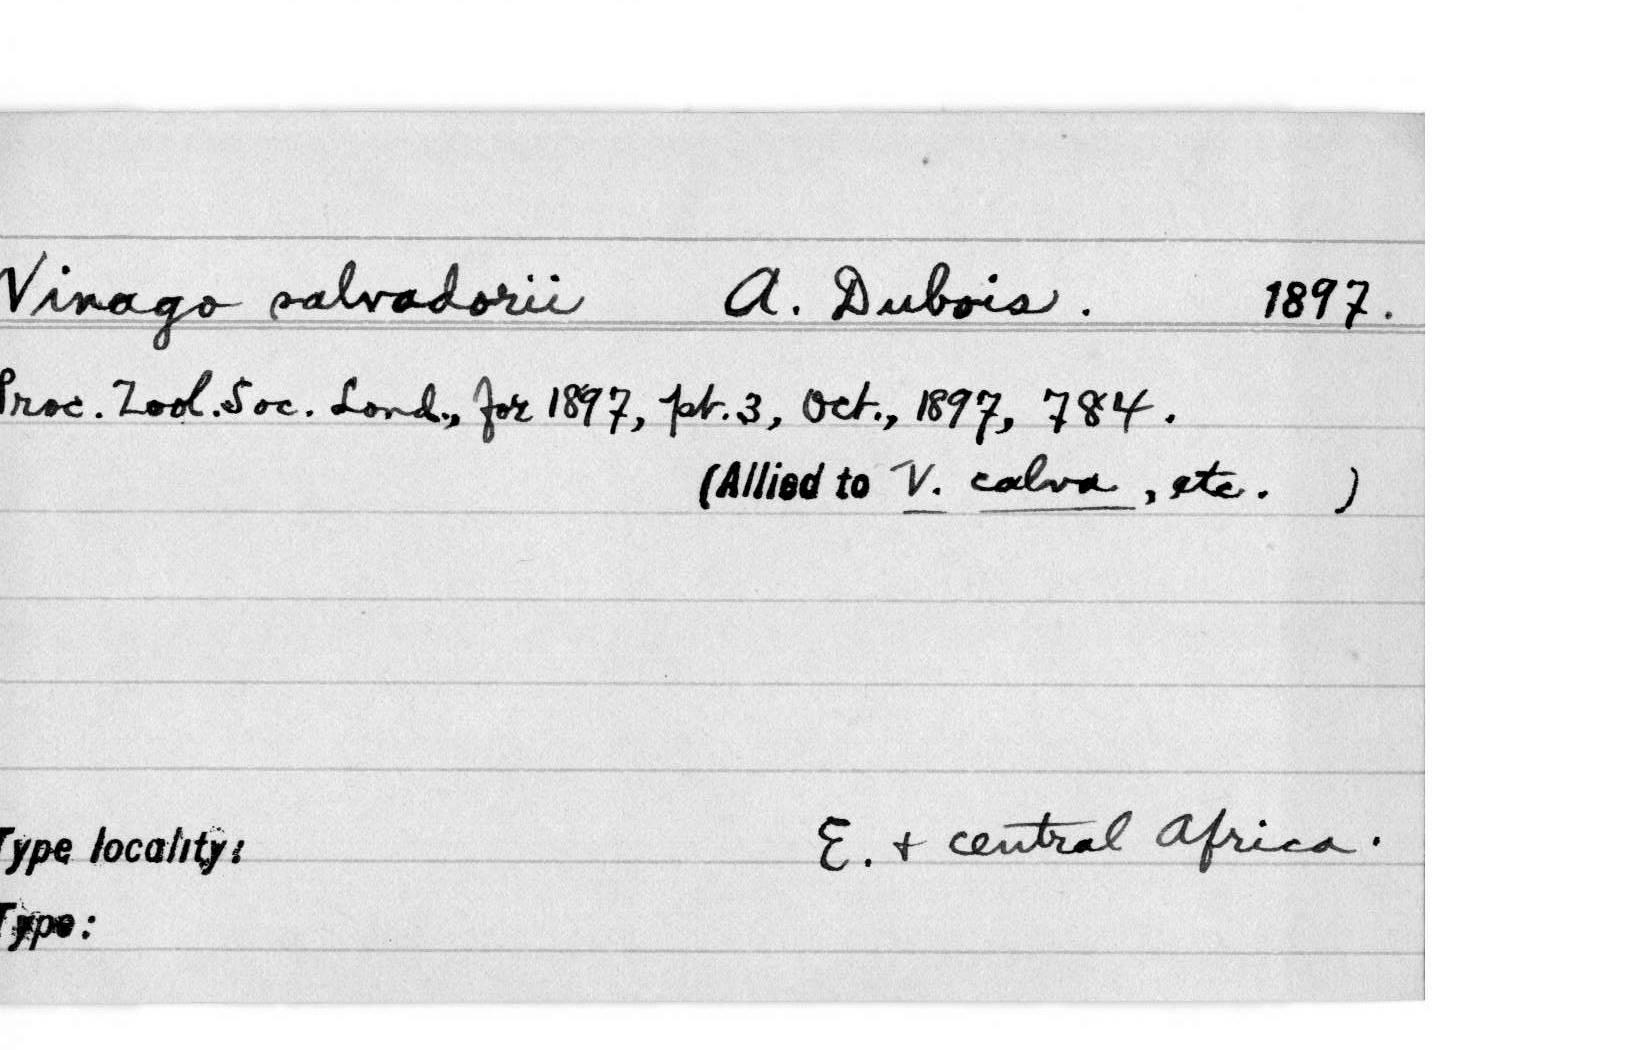 Vinago salvadorii A. Dubois. 1897.
Proc. Zool. Soc. Lond., for 1897, pt. 3, Oct., 1897, 784.
(Allied to V. calva, etc. )
Type locality: E. + central Africa.
Type: